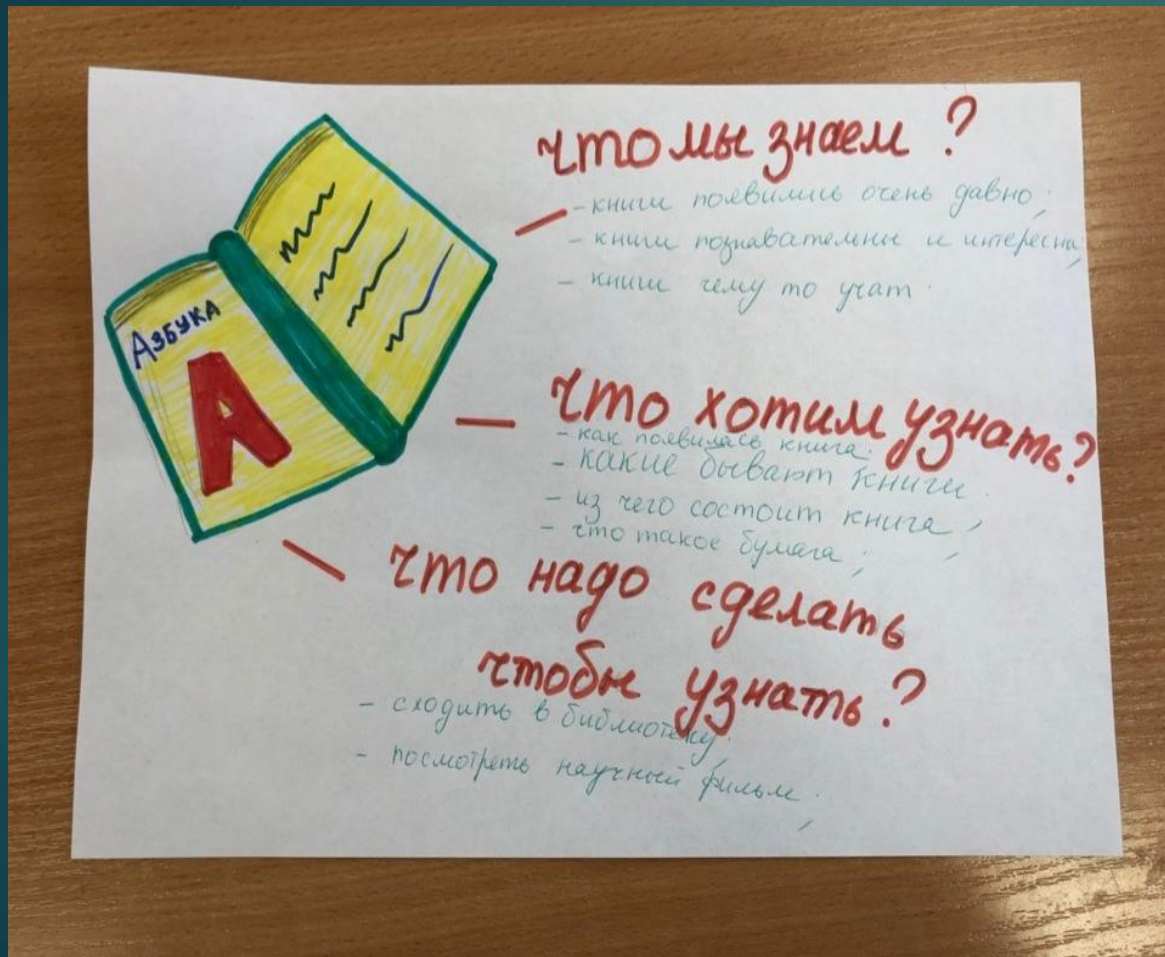 Азбука
А
что мы знаем?
- книги появились очень давно;
- книги познавательны и интересны;
- книги чему то учат.
что хотим узнать?
- как появилась книга.
- какие бывают книги.
- из чего состоит книга;
- что такое бумага;
что надо сделать
чтобы узнать?
- сходить в библиотеку;
- посмотреть научный фильм.